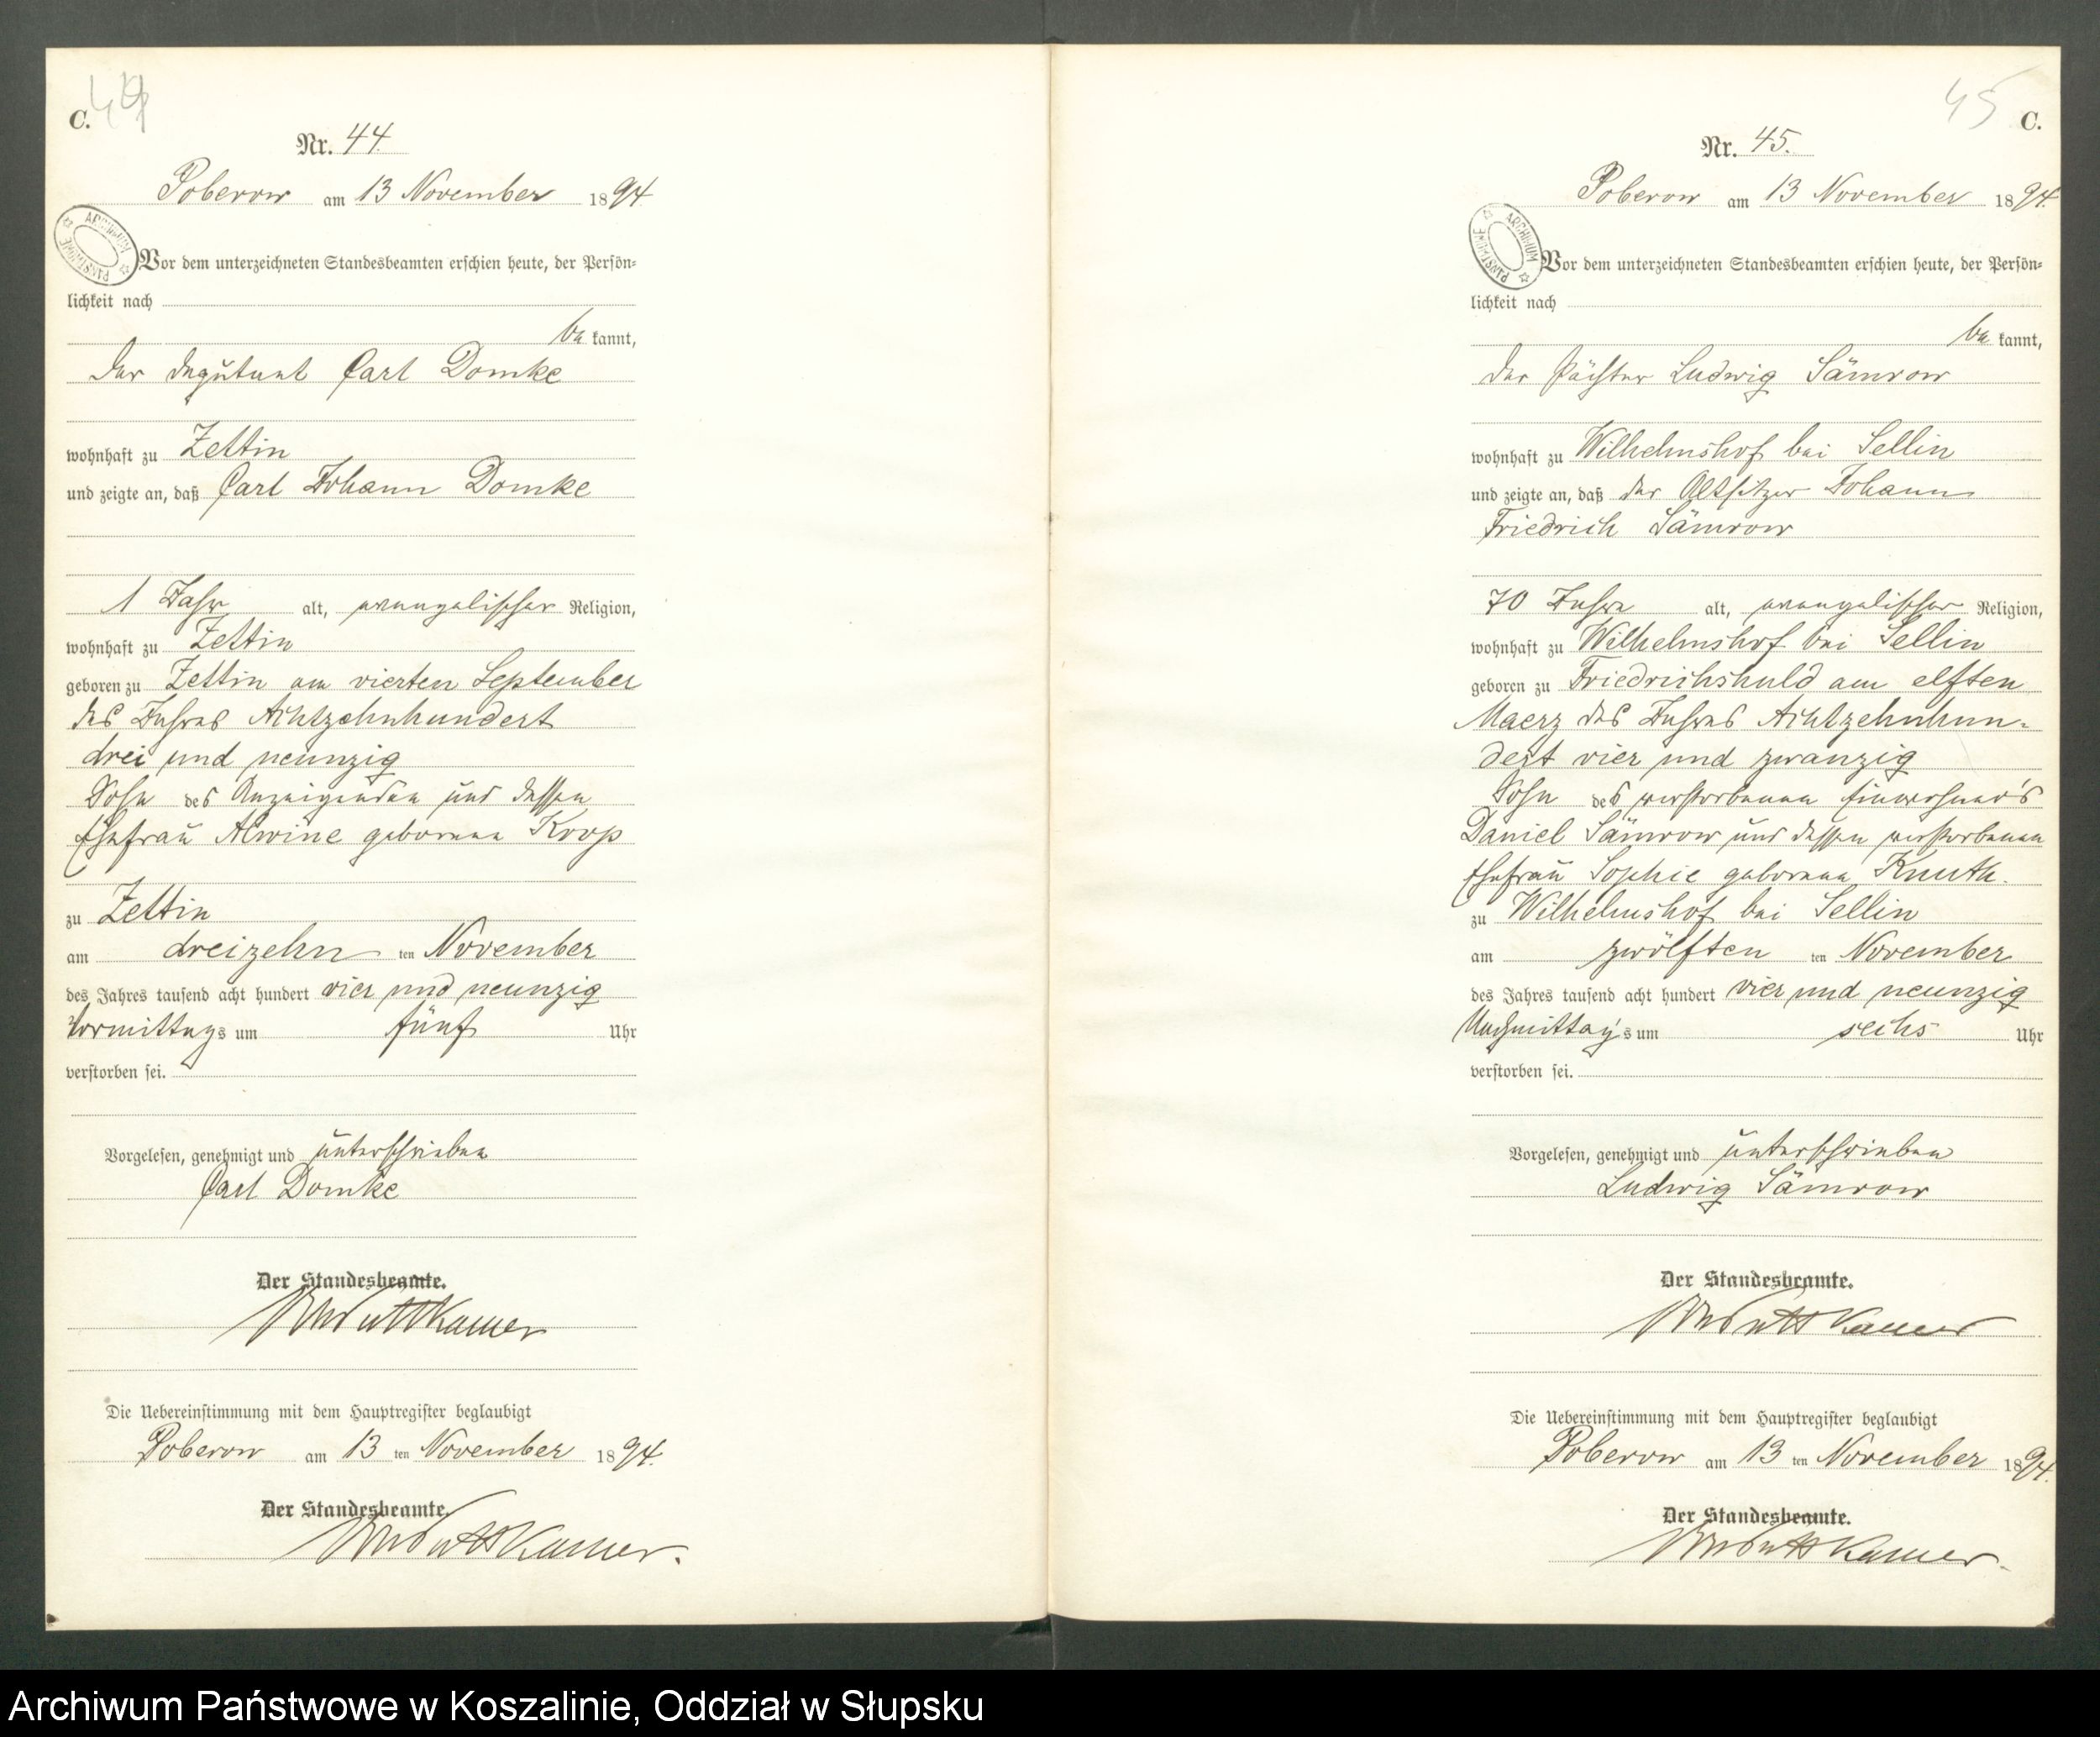 C.
44
Nr. 44.
Poberow am 13 November 1894
ARCHIWUM PAŃSTWOWE
Vor dem unterzeichneten Standesbeamten erschien heute, der Persön-
lichkeit nach
be kannt,
der Deputant Carl Domke
wohnhaft zu Zettin
und zeigte an, daß Carl Johann Domke
1 Jahr alt, evangelischer Religion,
wohnhaft zu Zettin
geboren zu Zettin am vierten September
des Jahres Achtzehnhundert
drei und neunzig
Sohn des Anzeigenden und dessen
Ehefrau Alwine geborene Koop
zu Zettin
am dreizehn ten November
des Jahres tausend acht hundert vier und neunzig
Vormittags um fünf Uhr
verstorben sei.
Vorgelesen, genehmigt und unterschrieben
Carl Domke
Der Standesbeamte.
Puttkamer
Die Uebereinstimmung mit dem Hauptregister beglaubigt
Poberow am 13 ten November 1894.
Der Standesbeamte.
Puttkamer.
45
C.
Nr. 45.
Poberow am 13 November 1894.
ARCHIWUM PAŃSTWOWE
Vor dem unterzeichneten Standesbeamten erschien heute, der Persön-
lichkeit nach
be kannt,
der Pächter Ludwig Sämrow
wohnhaft zu Wilhelmshof bei Sellin
und zeigte an, daß der Altsitzer Johann
Friedrich Sämrow
70 Jahre alt, evangelischer Religion,
wohnhaft zu Wilhelmshof bei Sellin
geboren zu Friedrichshuld am elften
Maerz des Jahres Achtzehnhun-
dert vier und zwanzig
Sohn des verstorbenen Einwohner's
Daniel Sämrow und dessen verstorbenen
Ehefrau Sophie geborene Knuth.
zu Wilhelmshof bei Sellin
am zwölften ten November
des Jahres tausend acht hundert vier und neunzig
Nachmittag's um sechs Uhr
verstorben sei.
Vorgelesen, genehmigt und unterschrieben
Ludwig Sämrow
Der Standesbeamte.
Puttkamer
Die Uebereinstimmung mit dem Hauptregister beglaubigt
Poberow am 13 ten November 1894.
Der Standesbeamte.
Puttkamer.
Archiwum Państwowe w Koszalinie, Oddział w Słupsku